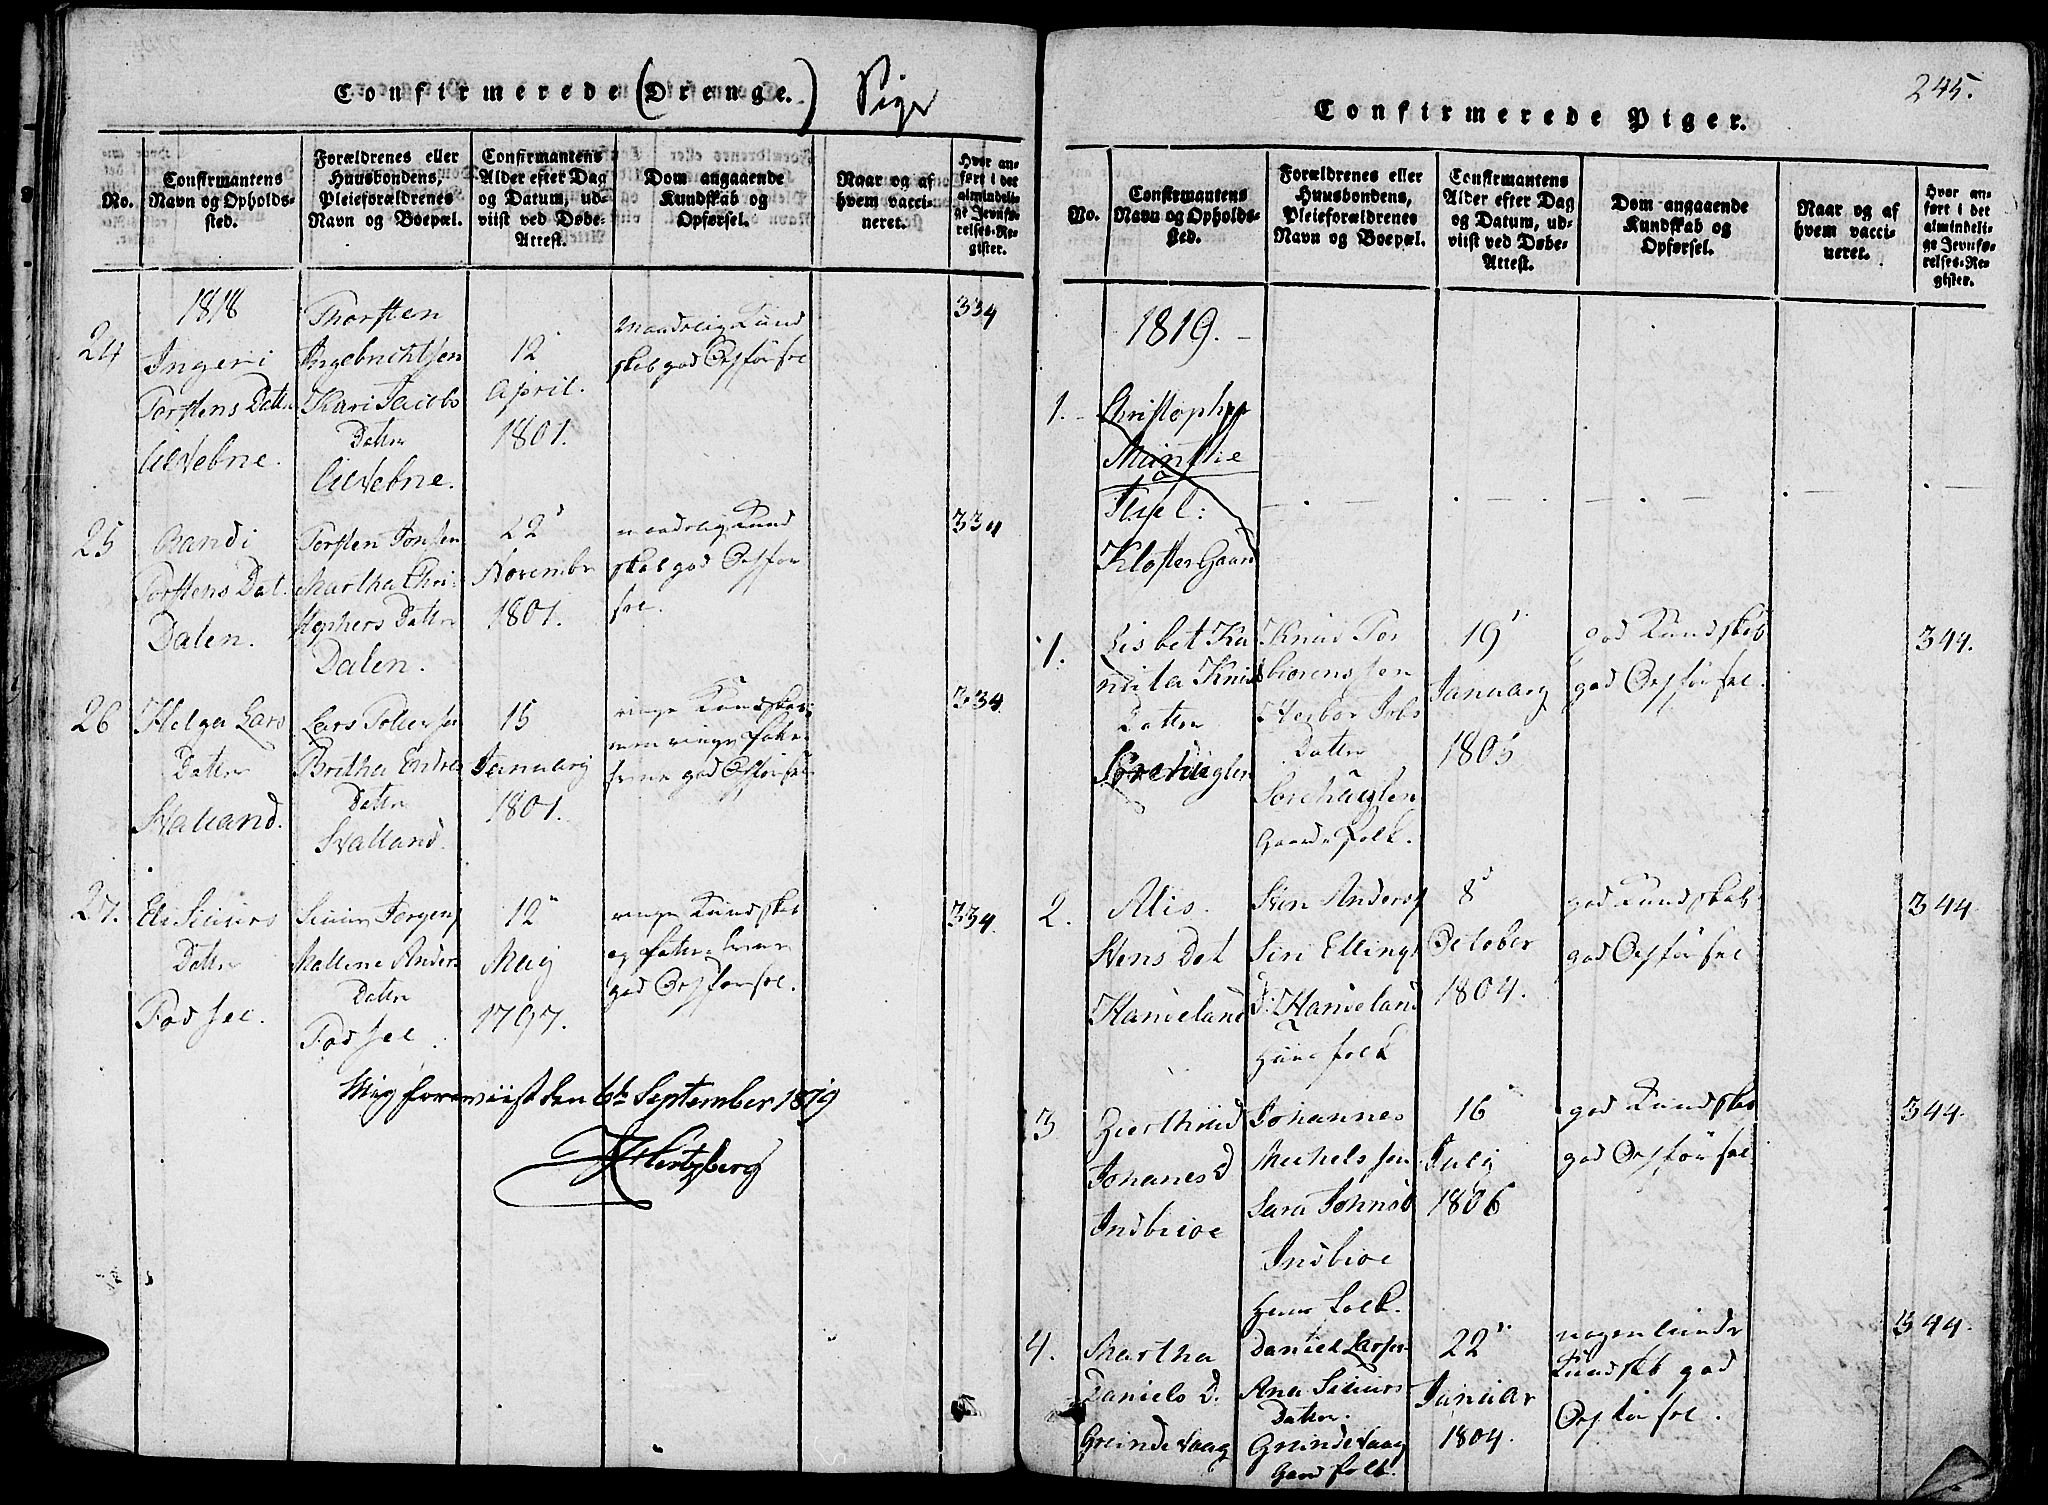 Confirmerede (Drenge.) Piger
No.
Confirmantens
Navn og Opholds-
sted.
Forældrenes eller
Huusbondens,
Pleieforældrenes
Navn og Boepæl.
Confirmantens
Alder efter Dag
og Datum, ud-
viist ved Døbe-
Attest.
Dom angaaende
Kundskab og
Opførsel.
Naar og af
hvem vacci-
neret.
Hvor an-
ført i det
almindeli-
ge Jevnfø-
relses-Re-
gister.
1818
24
Ingeri
Torstens Datter
Thorsten
Ingebrichtsen
Kari Jacobs
Datter
12
April.
1801.
maadelig Kund
skab god Opførsel
334
25
Randi
Torstens Dat.
Dalen.
Torsten Jonsen
Martha Chri-
stophers Datter
Dalen.
22
November
1801.
maadelig Kund
skab god Opfør
sel.
334
26
Helga Lars
Datter
Lars
Britha Endres
Datter
15
January
1801.
ringe Kundskab
god Opførsel
334
27.
Eli Siurs
Datter
Fodsel.
Siur Jørgens
Mallene Anders
Datter
Fodsel.
12
May
1797.
ringe Kundskab
og
god Opførsel.
334
Mig foreviist den 6te September 1819
Hertzberg
245.
Confirmerede Piger.
No.
Confirmantens
Navn og Opholds-
sted.
Forældrenes eller
Huusbondens,
Pleieforældrenes
Navn og Boepæl.
Confirmantens
Alder efter Dag
og Datum, ud-
viist ved Døbe-
Attest.
Dom angaaende
Kundskab og
Opførsel.
Naar og af
hvem vacci-
neret.
Hvor an-
ført i det
almindeli-
ge Jevnfø-
relses-Re-
gister.
1819.
1.
Christopher
Munthe
Kloster Gaard
1.
Lisbet Ka
Knuds
Datter
Knud Tor
biørensen
Herbor Jobs
Datter
Sørehuglen
Gaardefolk.
19
January
1805
god Kundskab
god Opførsel.
344.
2.
Alis.
Stens Dat
Handeland
Sten Anders
Siri Ellings
D. Handeland
Huusfolk
8
October
1804.
god Kundskab
god Opførsel
344
3
Johanes D
Indbioe
Johannes
Michelssen
Sara
Indbioe
16
July
1806
god Kundskab
god Opførsel
344
4.
Martha
Daniels D.
Grindevaag
Daniel Larsen
Ana Siurs
Datter.
Grindevaag
Gaardfolk.
22
Januar
1804.
nogenlunde
Kundskb god
Opførsel.
344.